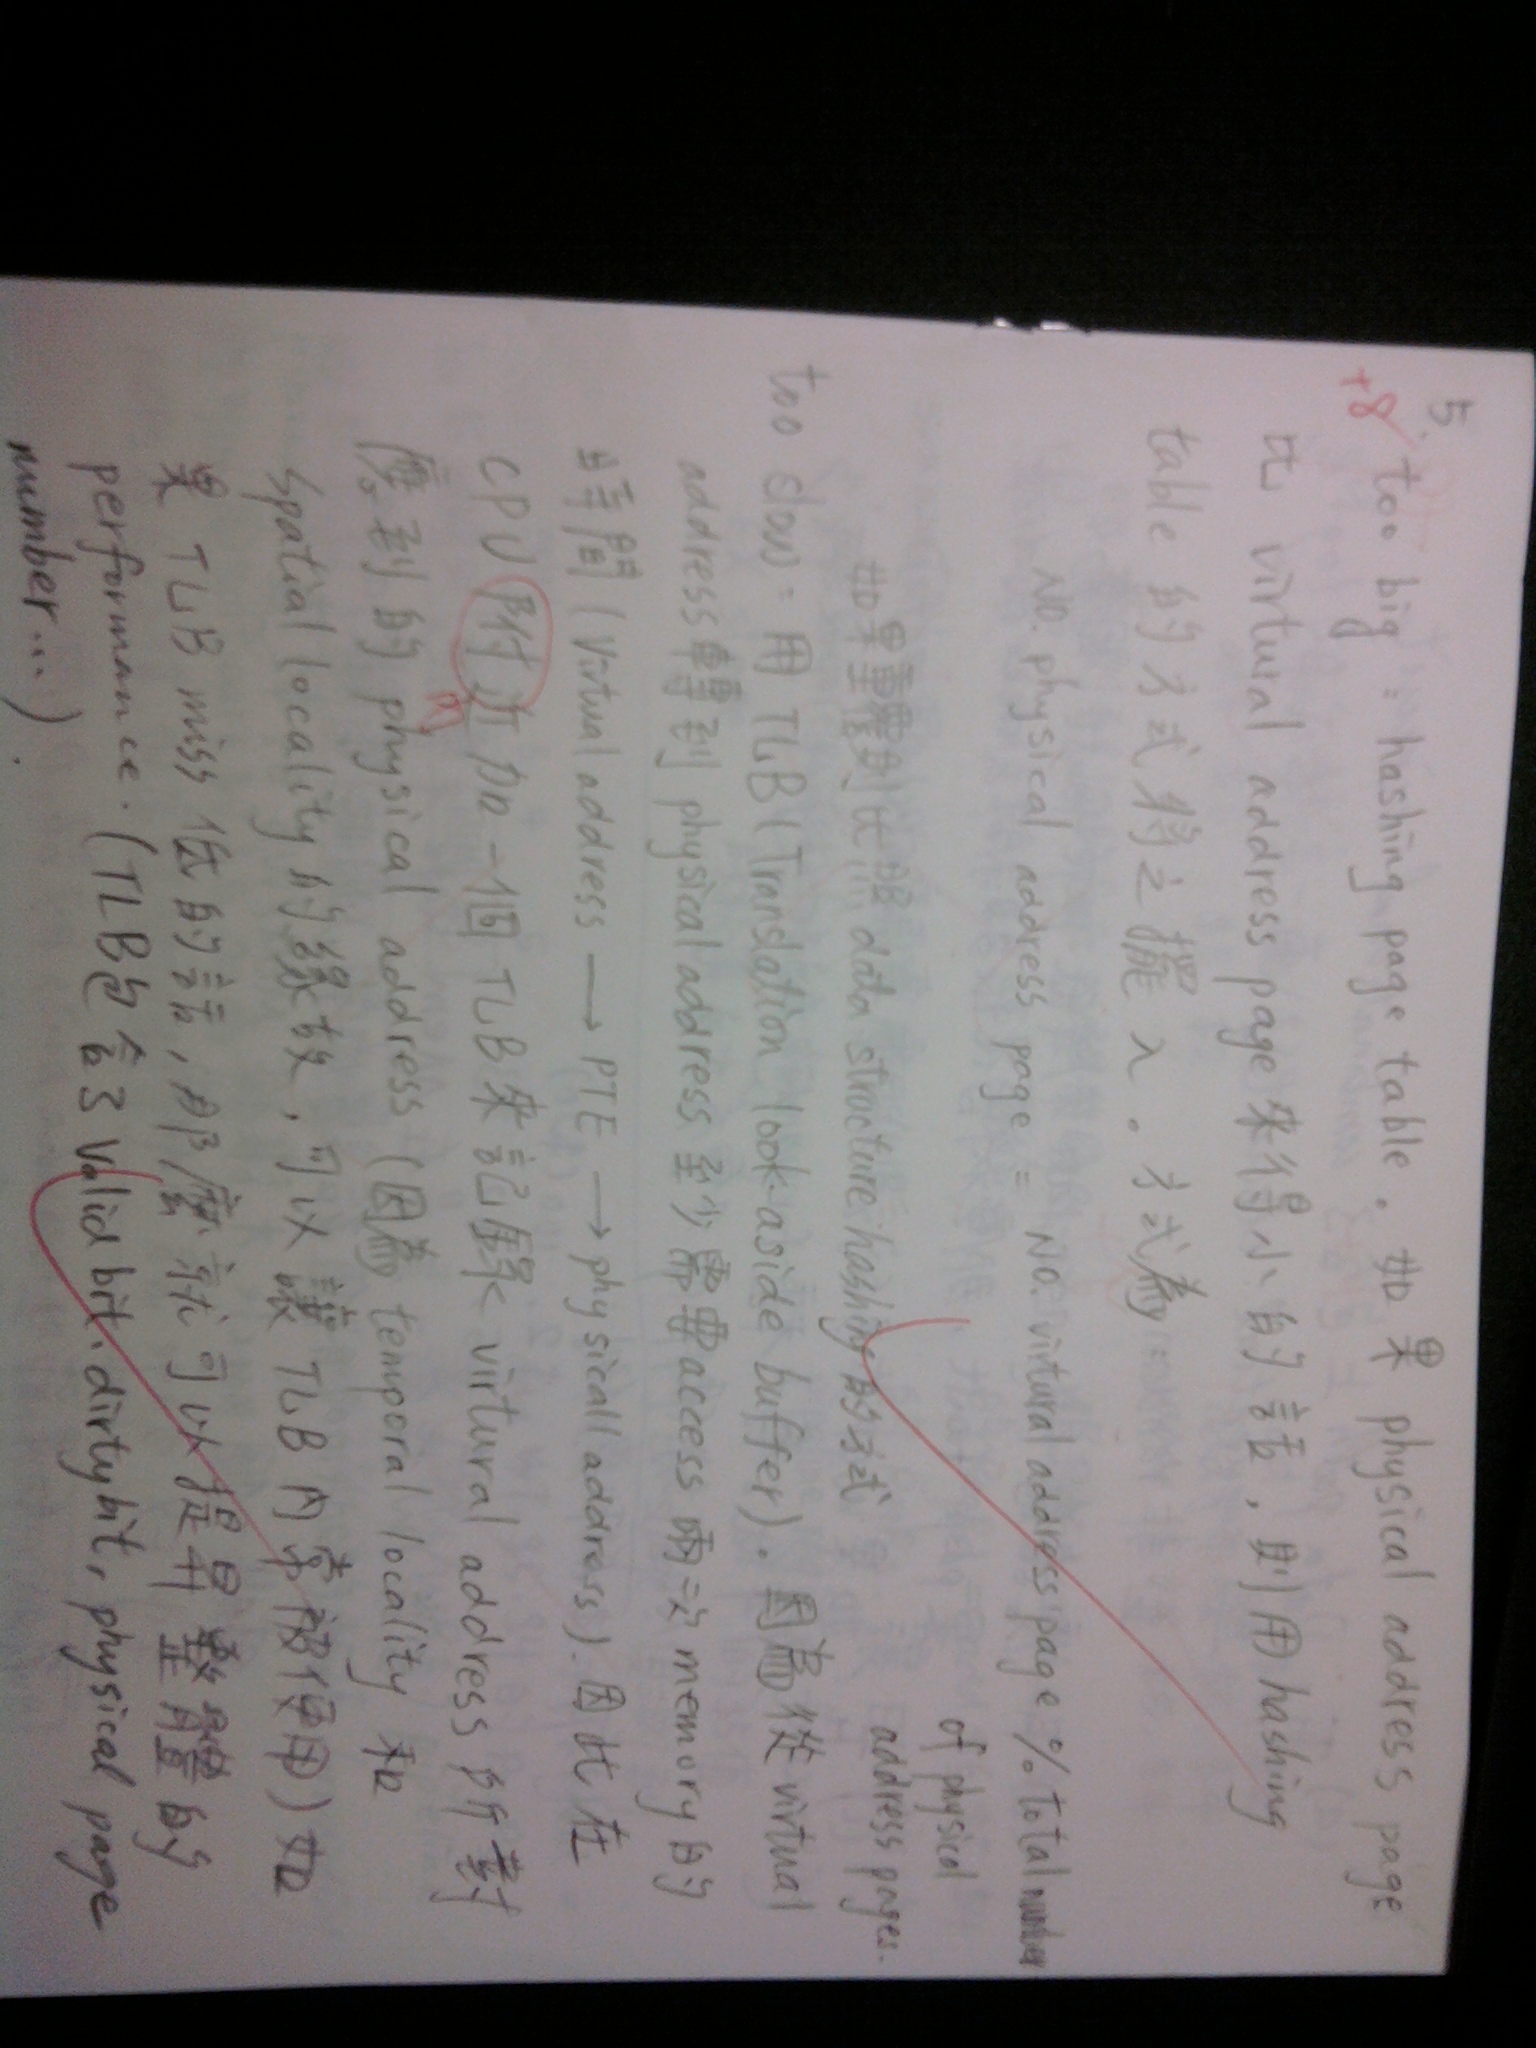 5.
+8
too big : hashing page table. 如果 physical address page
比 virtural address page 來得小的話, 則用 hashing
table 的方式將之擺入。方式為:
NO. physical address page = NO. virtural address page % total number
of physical
address pages.
如果重覆則比照 data structure hashing 的方式
too slow: 用 TLB (Translation look-aside buffer). 因為從 virtual
address 轉到 physical address 至少需要 access 兩次 memory 的
時間 (Virtual address → PTE → physicall address). 因此在
CPU 附近加一個 TLB 來記錄 virtural address 所對
內
應到的 physical address (因為 temporal locality 和
spatial locality 的緣故, 可以讓 TLB 內常被使用) 如
果 TLB miss 低的話, 那麼就可以提昇整體的
performance. (TLB包含了 valid bit, dirty bit, physical page
number...).